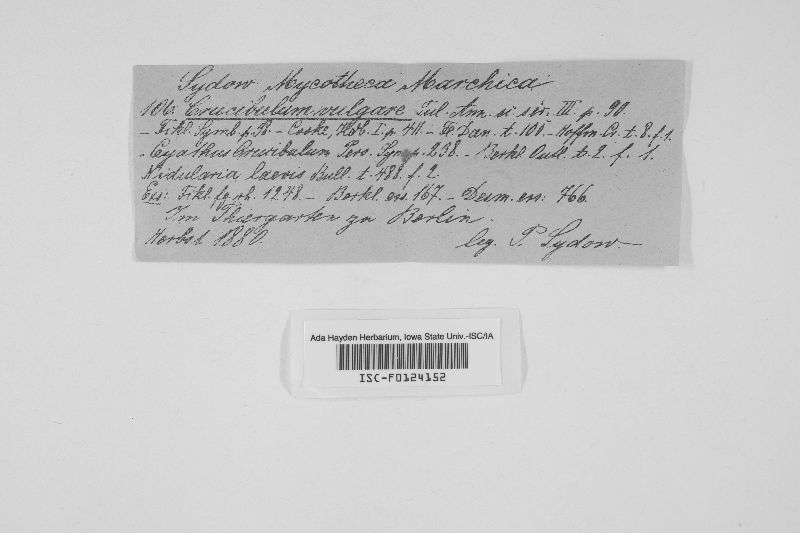 Sydow. Mycotheca Marchica
106. Crucibulum vulgare Tul. Ann. ci sér. III p. 90.
- Fckl. Symb. p. - Cooke, Hdb. I. p. 411. - Fl. Dan. t. 105. - Hoffm. Cr. t. 8. f. 1.
- Cyathus Crucibulum Pers. Syn. p. 238. - Berkl. Outl. t. 2. f. 1.
Nidularia laevis Bull. t. 488. f. 2.
Exs: Fckl. fg. rh. 1248. - Berkl. exs. 167. - Desm. exs: 766.
Im Thiergarten zu Berlin.
Herbst 1880. leg. P. Sydow.
Ada Hayden Herbarium, Iowa State Univ.-ISC/IA
ISC-F0124152